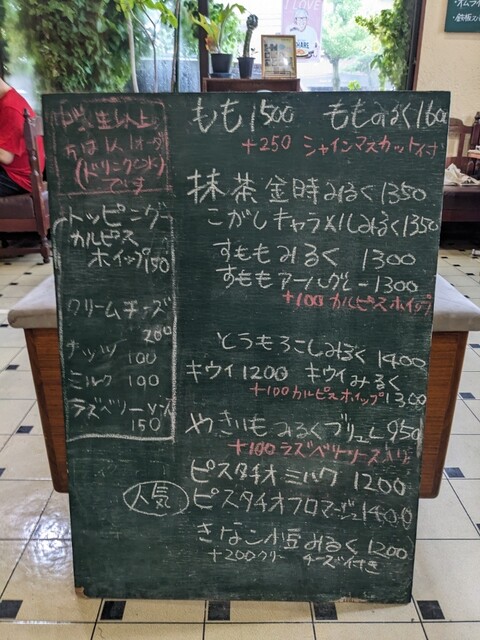 中学生以上
お一人1オーダー
(ドリンク以外)
です
トッピング
カルピス
ホイップ150
クリームチーズ
200
ナッツ
100
ミルク 100
ラズベリーソース
150
もも1500 ももみるく1600
+250 シャインマスカット付
抹茶金時みるく1350
こがしキャラメルみるく1350
すももみるく 1300
すももアールグレー1300
+100 カルピスホイップ
とうもろこしみるく 1400
キウイ1200 キウイみるく
+100カルピスホイップ 1300
やきいもみるくブリュレ950
+100 ラズベリーソース入り
ピスタチオミルク 1200
人気
ピスタチオフロマージュ1400
きなこ小豆みるく1200
+200クリームチーズ付き
I LOVE
オムライ
鉄板